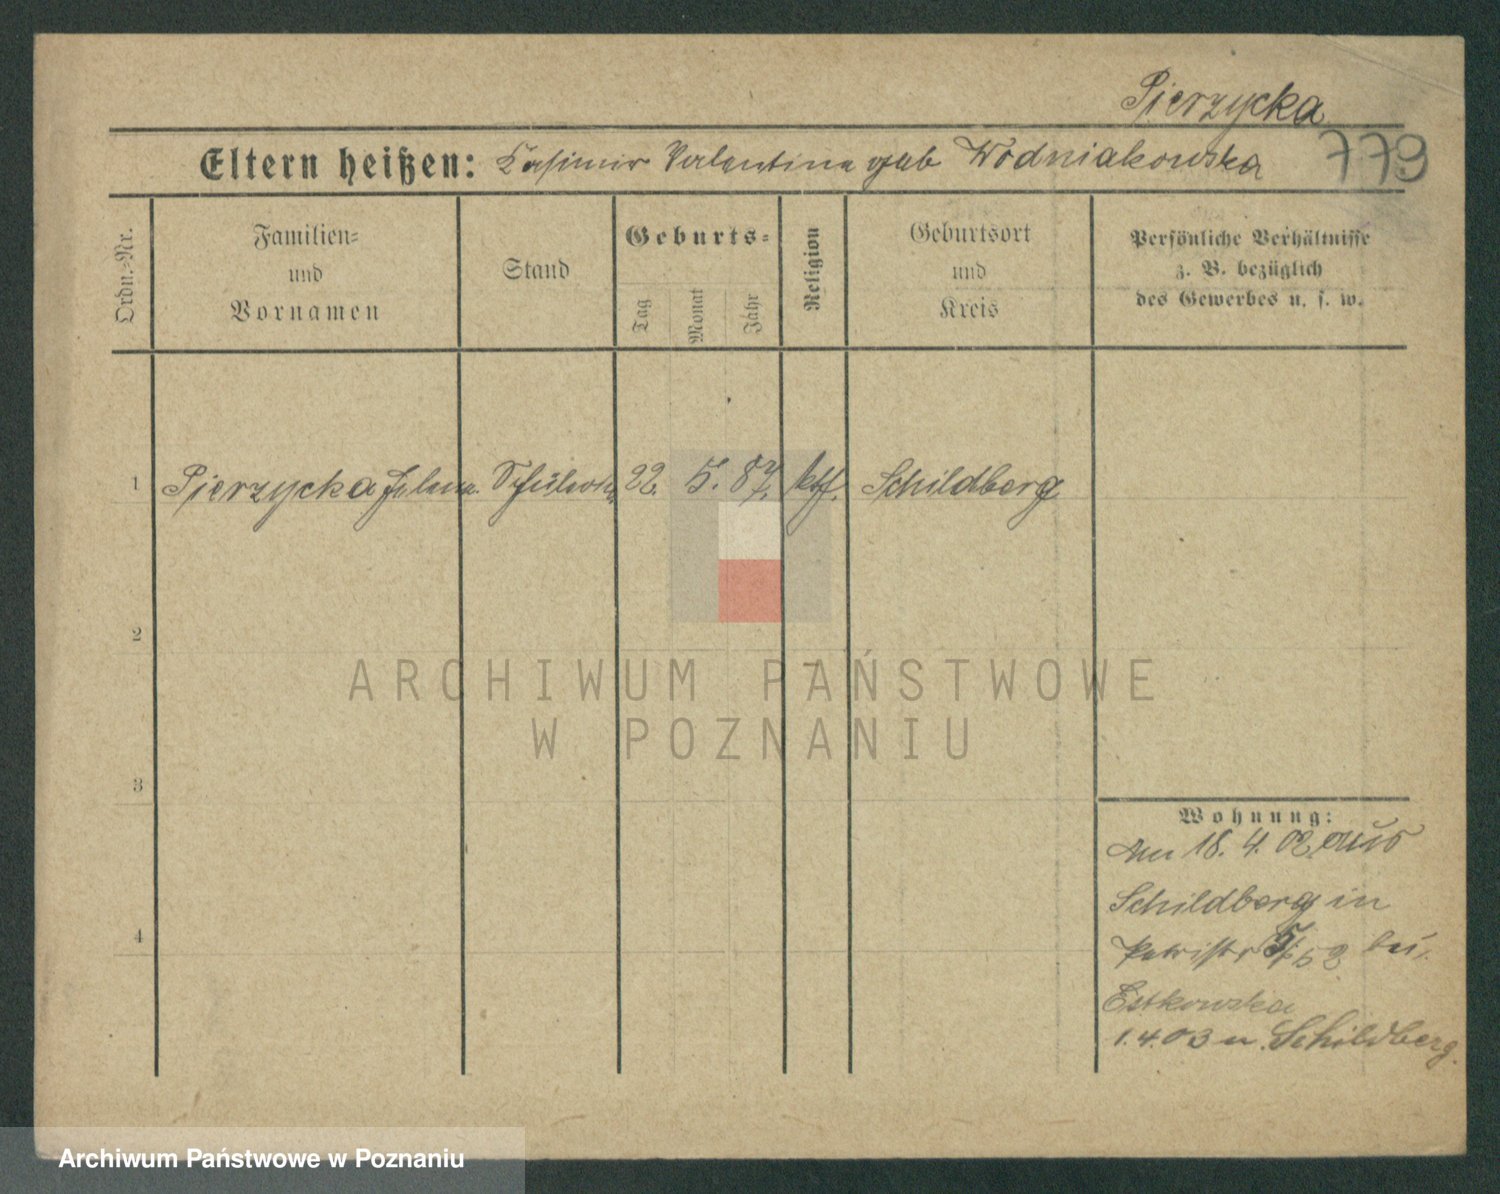 Pierzycka
Eltern heißen: Kasimir Valentina geb Wodniakowska 779
Ordn.-Nr.
Familien-
und
Vornamen
Stand
Geburts-
Tag
Monat
Jahr
Religion
Geburtsort
und
Kreis
Persönliche Verhältnisse
z. B. bezüglich
des Gewerbes u. s. w.
1 Pierzycka Helena. Schülerin 22. 5. 87. kth. Schildberg
2
3
4
ARCHIWUM PAŃSTWOWE
W POZNANIU
Wohnung:
Am 18. 4. 02 aus
Schildberg in
bei
Estkowska
1.4.03 n. Schildberg.
Archiwum Państwowe w Poznaniu